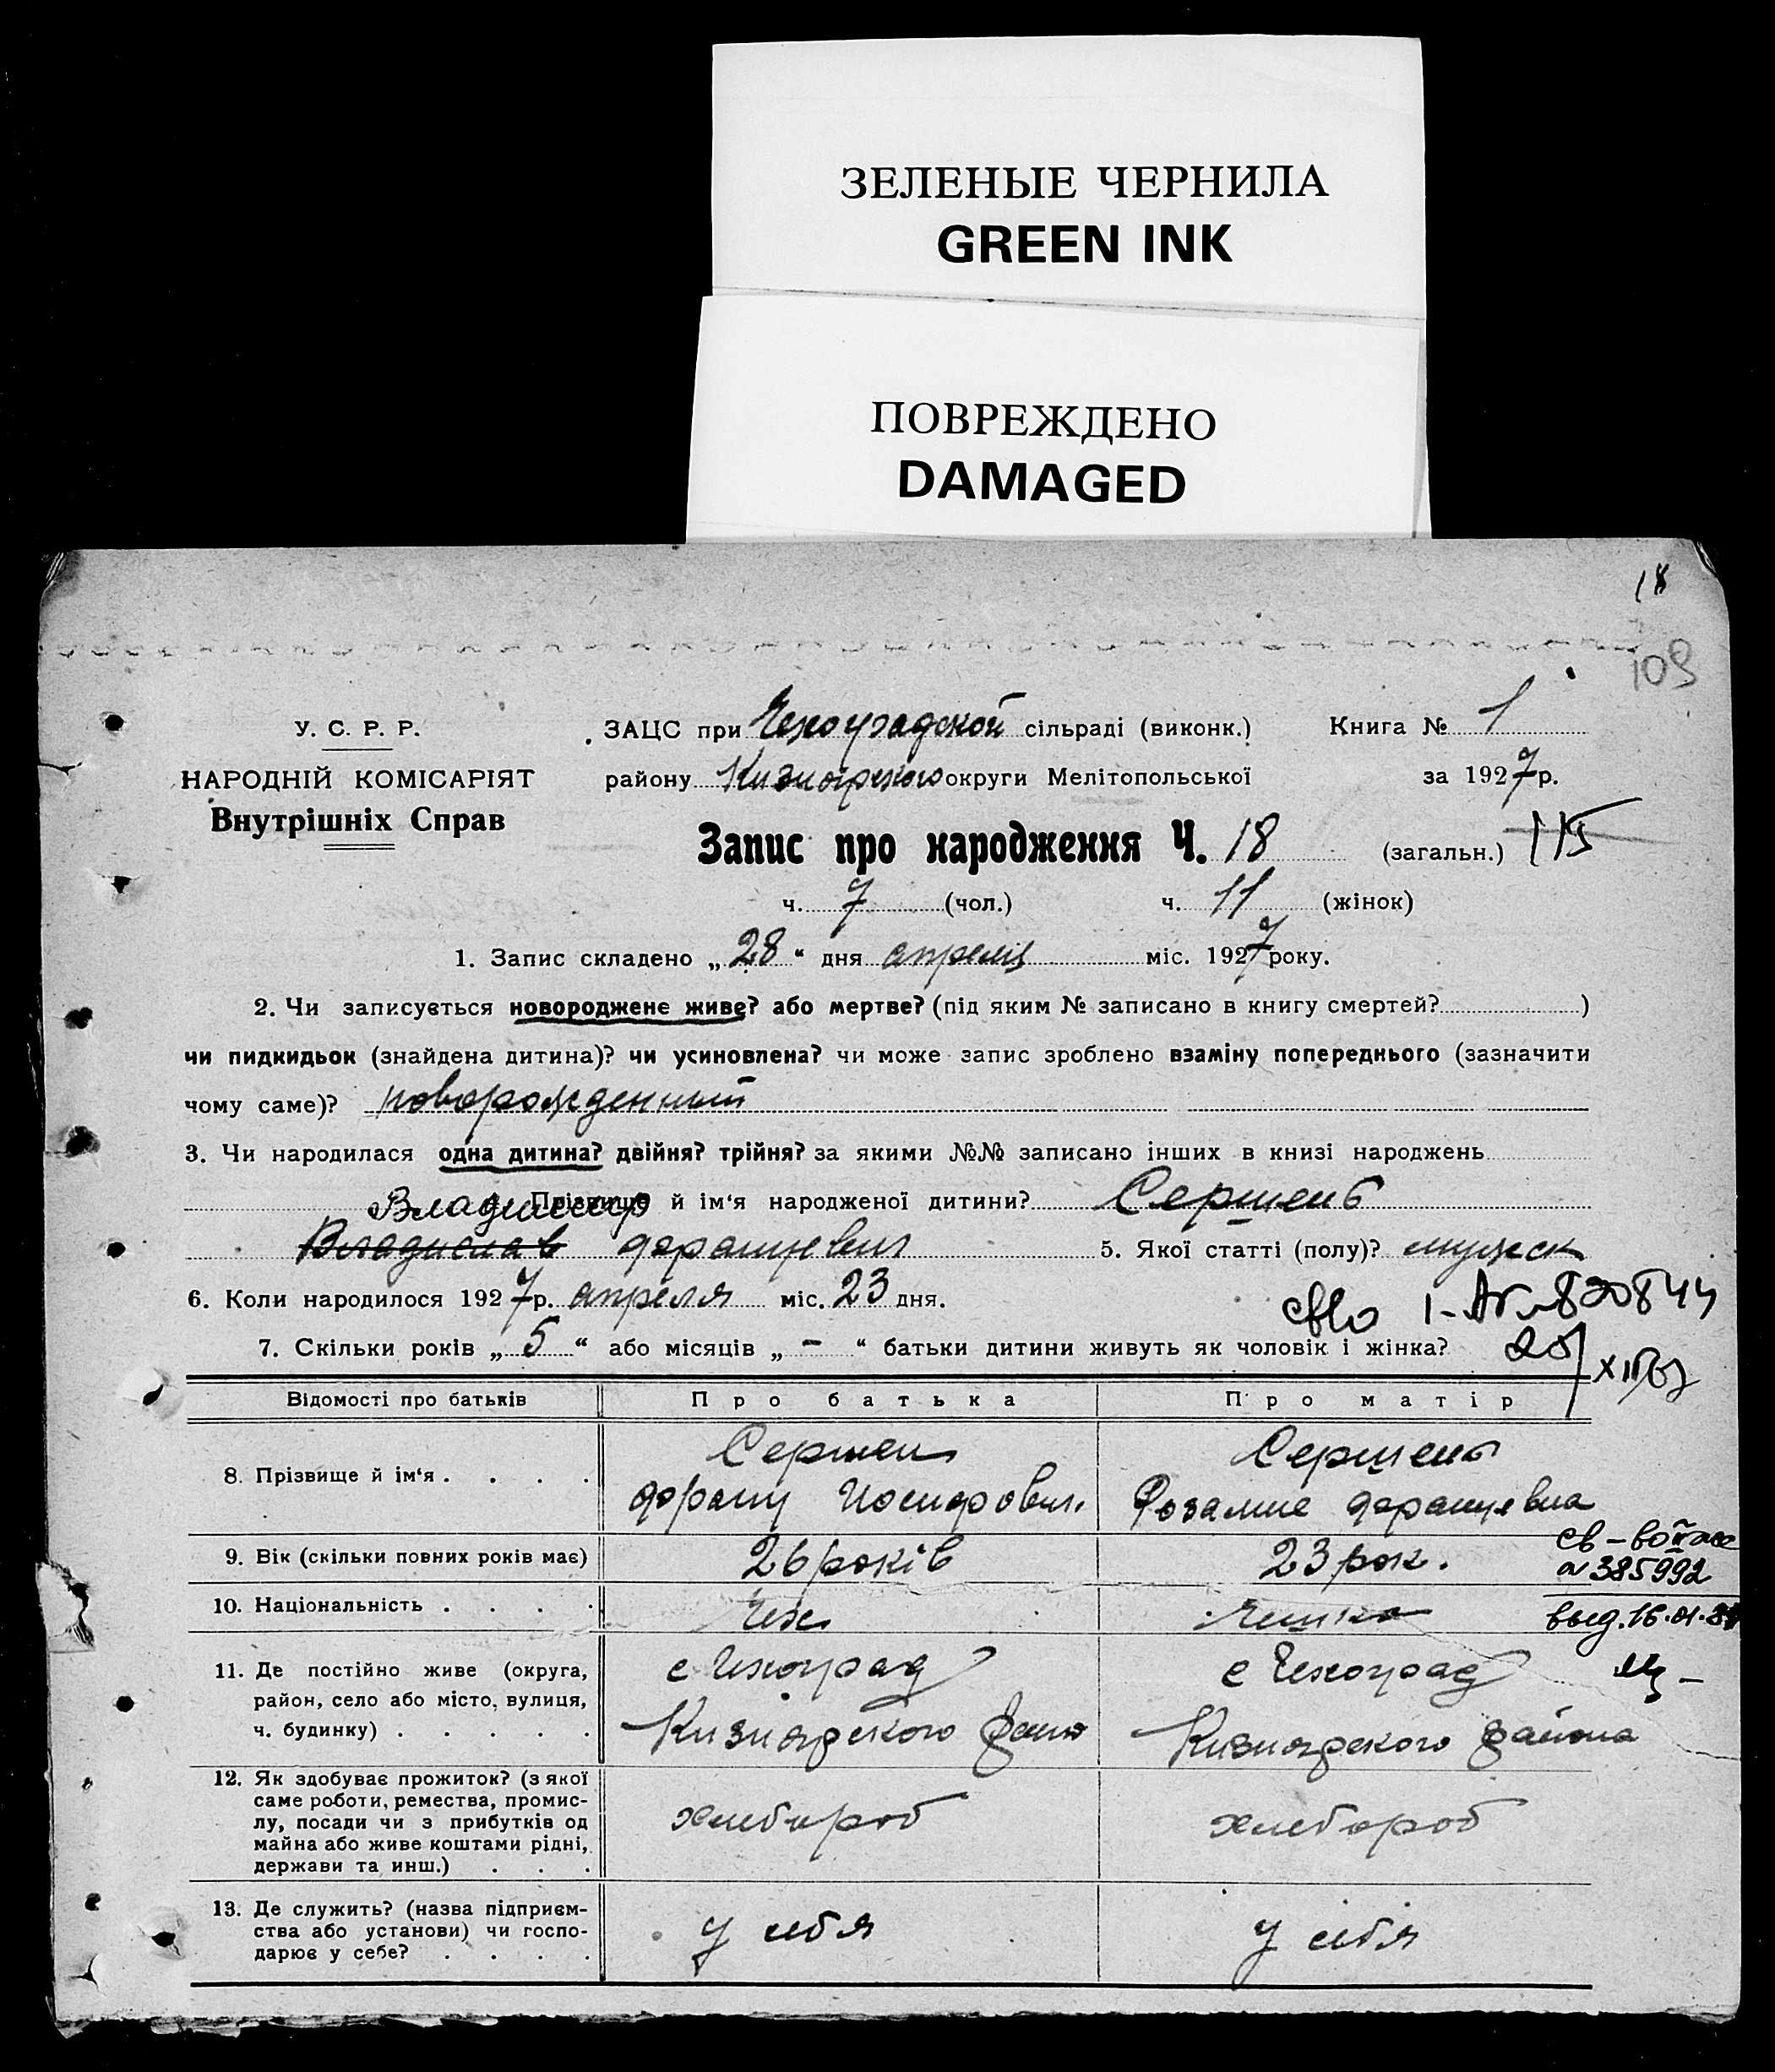 ЗЕЛЕНЫЕ ЧЕРНИЛА
GREEN INK
ПОВРЕЖДЕНО
DAMAGED
18
109
У. С. Р. Р.
НАРОДНІЙ КОМІСАРІЯТ
Внутрішніх Справ
ЗАЦС при Чехоградской сільраді (виконк.) Книга № 1
району Кизиярского округи Мелітопольської за 1927 р.
Запис про народження Ч. 18 (загальн.) 115
ч. 7 (чол.) ч. 11 (жінок)
1. Запис складено „28“ дня апреля міс. 1927 року.
2. Чи записується новороджене живе? або мертве? (під яким № записано в книгу смертей?)
чи пидкидьок (знайдена дитина)? чи усиновлена? чи може запис зроблено взаміну попереднього (зазначити
чому саме)? новорожденный
3. Чи народилася одна дитина? двійня? трійня? за якими №№ записано інших в книзі народжень
Владимир Прізвище й ім‘я народженої дитини?
Владислав 5. Якої статті (полу)? мужск
6. Коли народилося 1927 р. апреля міс. 23 дня.
7. Скільки років „5“ або місяців „-“ батьки дитини живуть як чоловік і жінка?
Відомості про батьків Про батька Про матір
8. Прізвище й ім‘я
9. Вік (скільки повних років має) 26 років 23 рок.
№ 385992
10. Національність Чех Чешка
выд. 16.01.
11. Де постійно живе (округа, с Чехоград с Чехоград
район, село або місто, вулиця,
ч. будинку) Кизиярского Кизиярского района
12. Як здобуває прожиток? (з якої
саме роботи, ремества, промис-
лу, посади чи з прибутків од хлебороб хлебороб
майна або живе коштами рідні,
держави та инш.)
13. Де служить? (назва підприєм-
ства або установи) чи госпо- у себя у себя
дарює у себе?